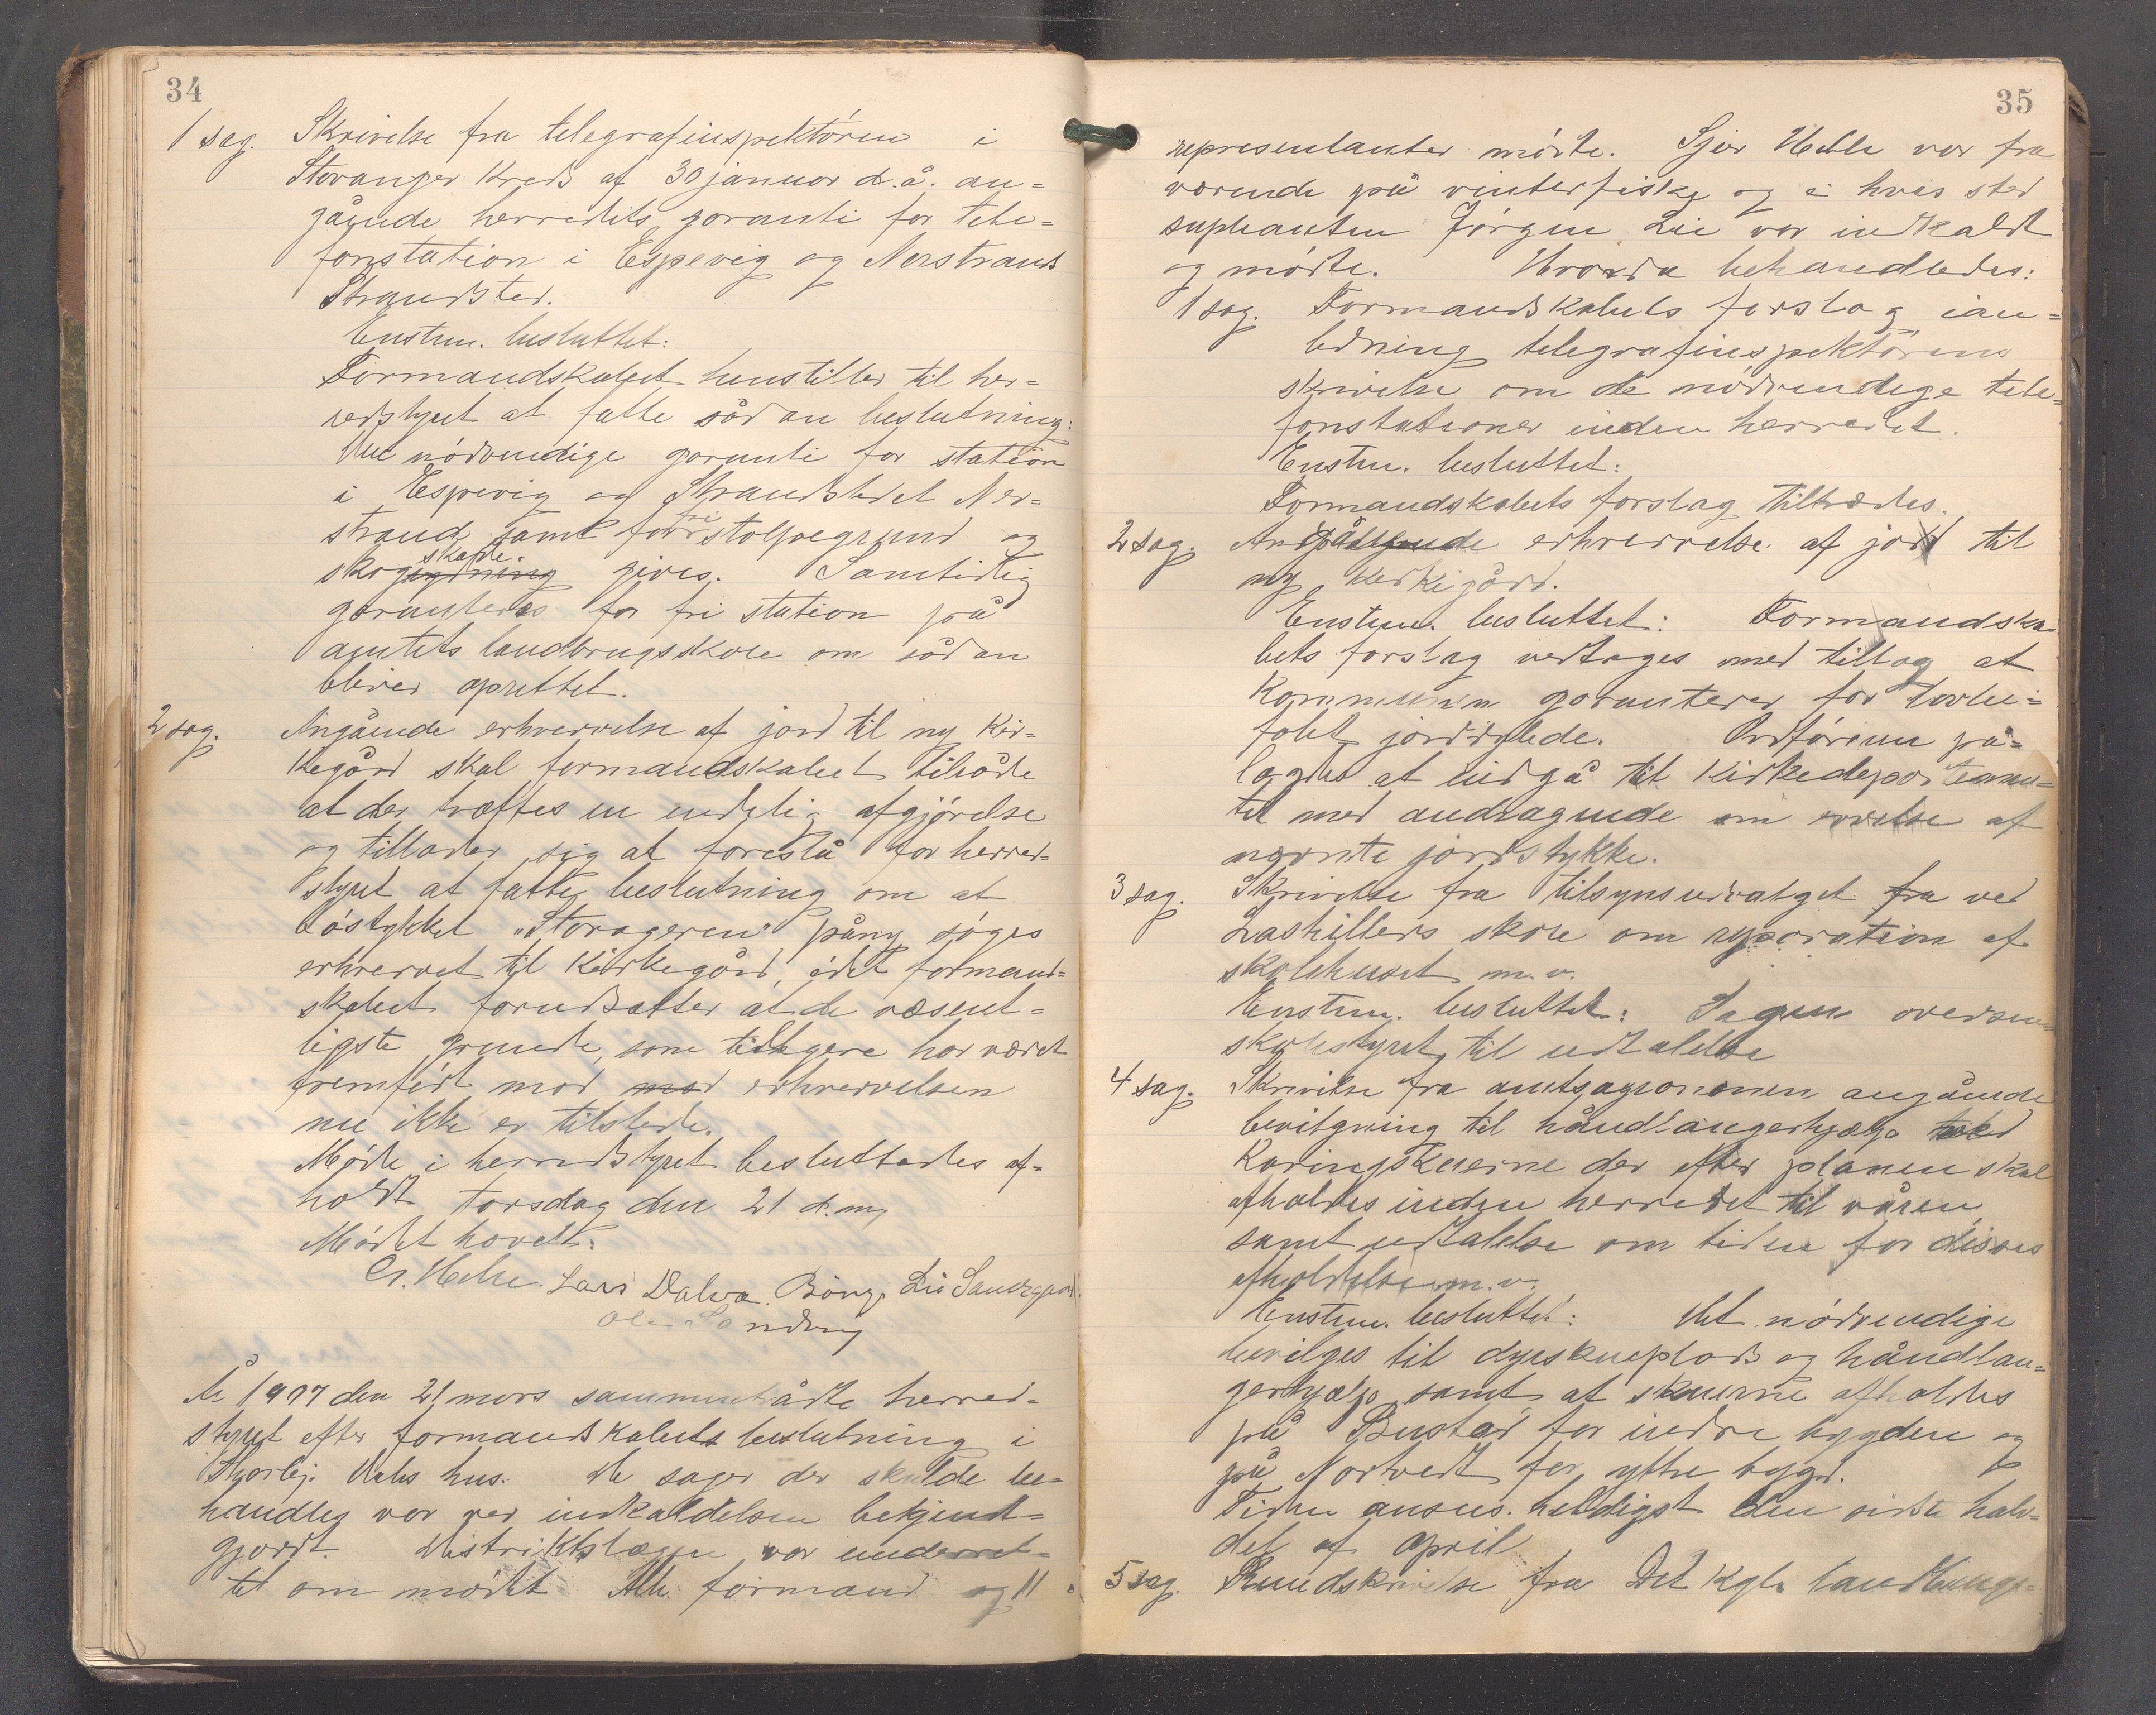 34
1 sag. Skrivelse fra telegrafinspektören i
Stavanger Kreds af 30 januar d.å. an=
gående herredets garanti for tele=
fonstation i Espevig og Nerstrands
Strandsted.
Enstem. besluttet:
Formandskabet henstiller til her=
redstyret at fatte sådan beslutning:
Den nödvendige garanti for station
i Espevig og Strandstedet Ner=
strand samt for fri stolpegrund og
skogskade gives. Samtidig
garanteres for fri station på
amtets landbrugsskole om sådan
bliver oprettet.
2 sag. Angående erhvervelse af jord til ny Kir=
kegård skal formandskabet tilråde
at der træffes en endelig afgjörelse
og tillader sig at foreslå for herred=
styret at fatte beslutning om at
Löstykket "Storageren" påny söges
erhvervet til Kirkegård, idet formand=
skabet forudsætter at de væsent=
ligste grunde, som tidligere har været
fremfört mod mod erhvervelsen
nu ikke er tilstede.
Möde i herredstyret besluttedes af=
holdt torsdag den 21 d.m.
Mödet hævet.
Lars Dalva. Börge Lie Sandsgård.
Ole Sandvig
År 1907 den 21 mars sammentrådte herred=
styret efter formandskabets beslutning i
hus. De sager der skulde be=
handles var ved indkaldelsen bekjendt=
gjordt. Distriktslægen var underret=
tet om mödet. Alle formænd og 11
35
representanter mödte. Sjur Helle var fra
værende på vinterfiske og i hvis sted
supleanten Jörgen Lie var indkaldt
og mödte. Hvorda behandledes:
1 sag. Formandskabets forslag ian=
ledning telegrafinspektörens
skrivelse om de nödvendige tele=
fonstationer inden herredet.
Enstm. besluttet:
Formandskabets forslag tiltrædes.
2 sag. Angående erhvervelse af jord til
ny Kirkigård.
Enstem. besluttet: Formandska=
bets forslag vedtages med tillæg at
Kommunen garanterer for
jordstykke. Ordföreren på=
lægdes at indgå til Kirkedepartemen=
tet med andragende om af
nævnte jordstykke.
3 sag. Skrivelse fra tilsynsudvalget fra ved
skole om reparation af
skolehuset m.v.
Enstm. besluttet: Sagen oversen=
skolestyret til udtalelse
4 sag. Skrivelse fra amtsagronomen angående
bevilgning til håndlangerhjælp ved
Kåringskuerne der efter planen skal
afholdes inden herredet til våren,
samt udtalelse om tiden for disses
afholdelse m.v.
Enstem. besluttet: Det nödvendige
bevilges til dyrskueplads og håndlan=
gerhjælp samt at skuerne afholdes
på Bustad for indre bygden og
på Nortvedt for yttre bygd.
Tiden ansees heldigst den sidste halv=
del af april
5 sag. Rundskrivelse fra Det Kgl. landbrugs=